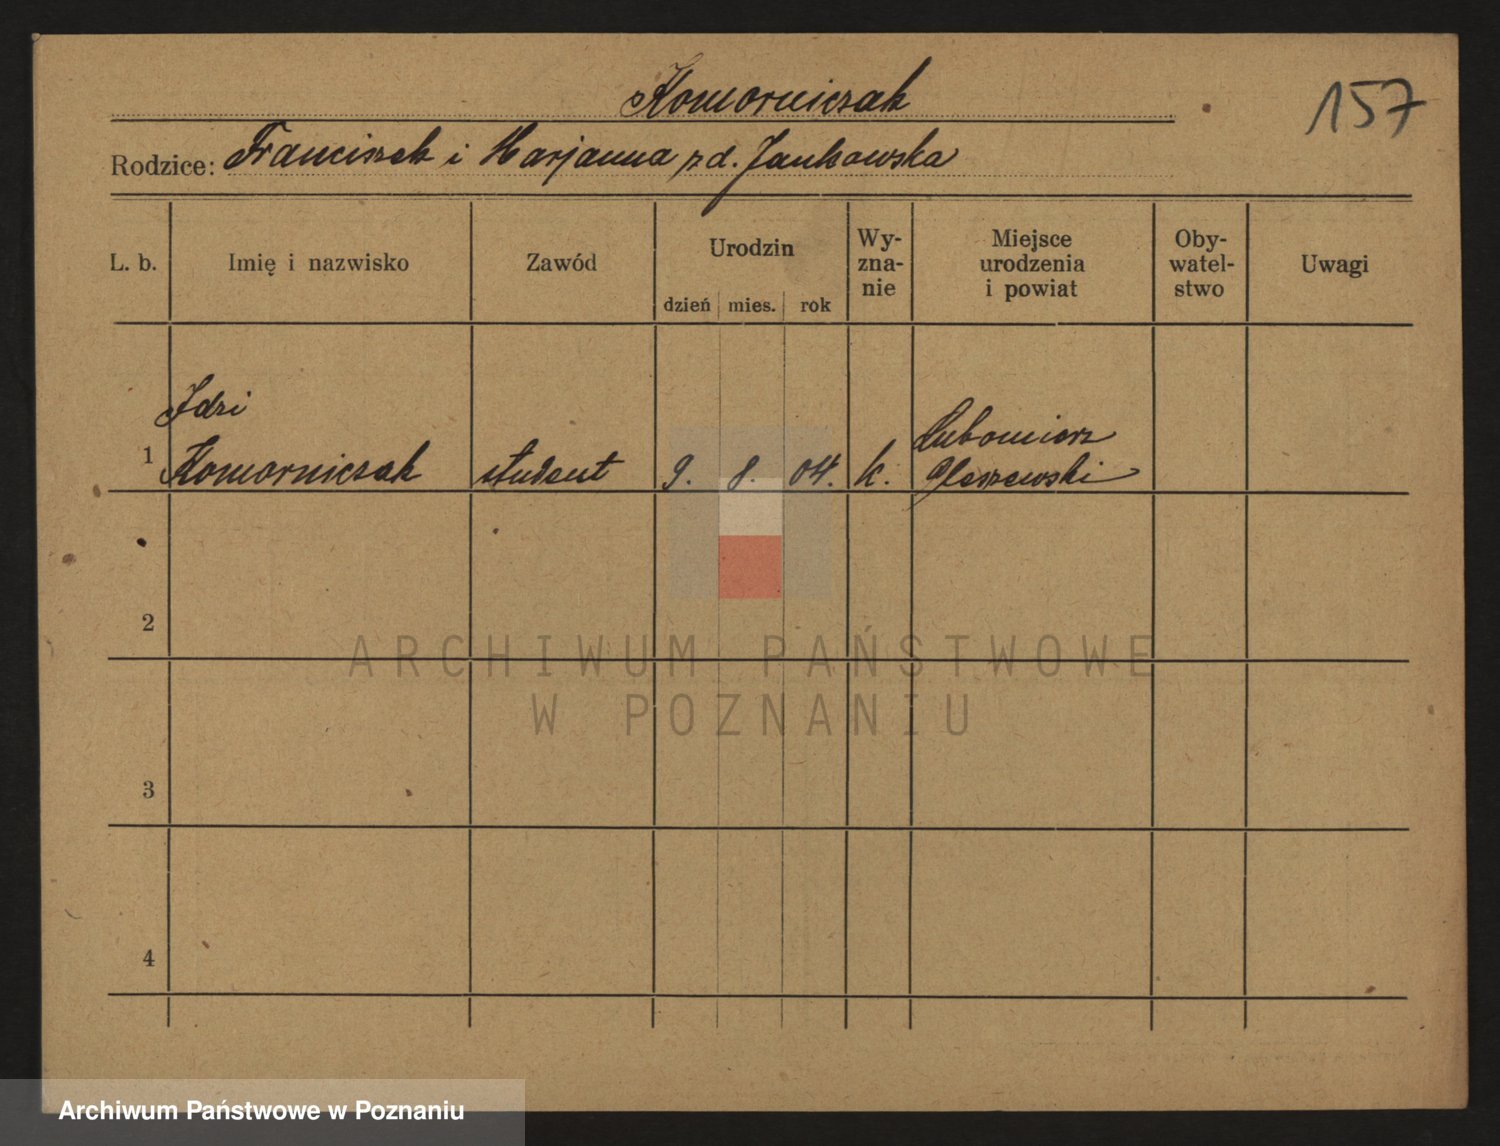 Komorniczak
157
Rodzice: Franciszek i Marjanna zd. Jankowska
L. b.
Imię i nazwisko
Zawód
Urodzin
dzień mies. rok
Wy-
zna-
nie
Miejsce
urodzenia
i powiat
Oby-
watel-
stwo
Uwagi
Idzi
1 Komorniczak student 9. 8. 04. k. Lubomierz
Pleszewski
2
3
4
ARCHIWUM PAŃSTWOWE
W POZNANIU
Archiwum Państwowe w Poznaniu